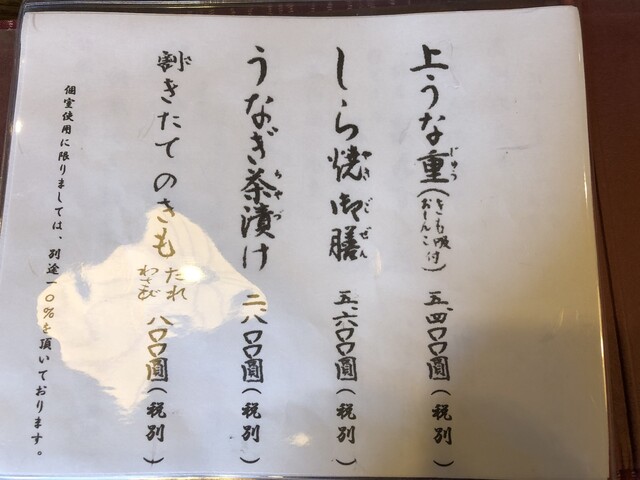 上うな重(きも吸付 おしんこ) 五、四〇〇圓(税別)
じゅう
しら焼御膳 五、六〇〇圓(税別)
やき ごぜん
うなぎ茶漬け 二、八〇〇圓(税別)
ちゃづ
割きたてのきも たれ わさび 八〇〇圓(税別)
さ
個室使用に限りましては、別途一〇%を頂いております。